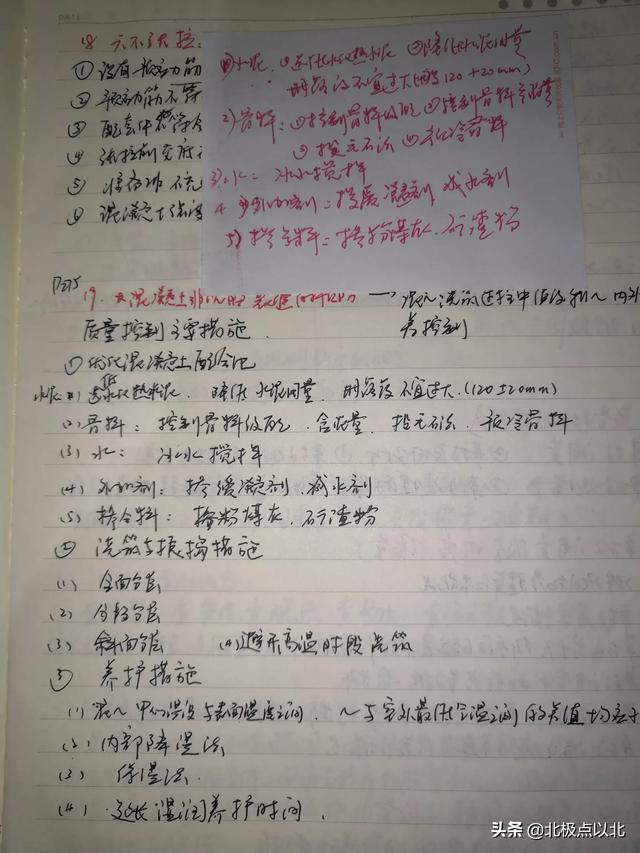 DATE
18 六不张拉:
① 没有预应力筋
② 预应力筋不
③ 配套件不
④ 张拉
⑤
⑥ 混凝土强度
① 水泥 ①选低水化热水泥 ②降低水泥用量
坍落度不宜过大(120±20mm)
2) 骨料: ①控制骨料级配 ②控制骨料含泥量
③ 投无石 ④ 预冷骨料
3) 水: 冰水搅拌
4 外加剂: 掺缓凝剂 减水剂
5) 掺合料: 掺粉煤灰、矿渣粉
P275
19. 大混凝土 → 混凝土浇筑过程中
质量控制主要措施. 点控制
① 优化混凝土配合比
水泥 (1) 选低水化热水泥 降低水泥用量 坍落度不宜过大.(120±20mm)
(2) 骨料: 控制骨料级配. 含泥量、投无石 预冷骨料
(3) 水: 冰水搅拌
(4) 外加剂: 掺缓凝剂、减水剂
(5) 掺合料: 掺粉煤灰、矿渣粉
② 浇筑与振捣措施
(1) 全面分层
(2) 分段分层
(3) 斜面分层 (4)避开高温时段浇筑
③ 养护措施
(1) 混~中心温度与表面温度之间. ~与室外最低气温之间的差值均应
(2) 内部降温法
(3) 保温法.
(4) 延长湿润养护时间.
头条 @北极点以北